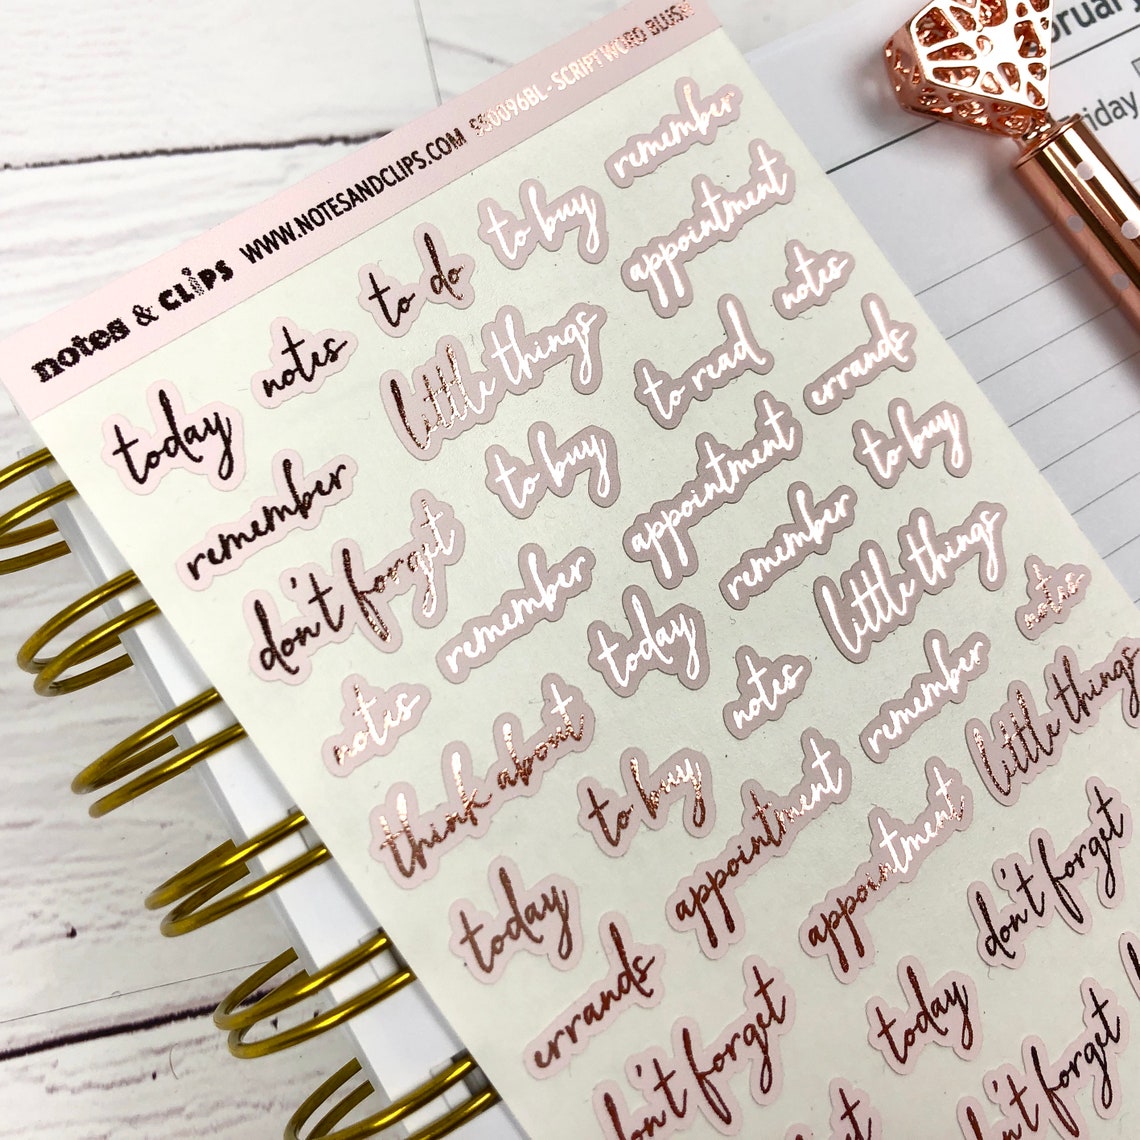 notes & clips WWW.NOTESANDCLIPS.COM SS0096BL - SCRIPT WORD BLUSH
today
notes
to do
to buy
remember
remember
little things
appointment
don't forget
to buy
to read
notes
notes
remember
appointment
errands
think about
today
remember
to buy
today
to buy
notes
little things
errands
appointment
remember
notes
don't forget
appointment
little things
today
don't forget
don't forget
Friday